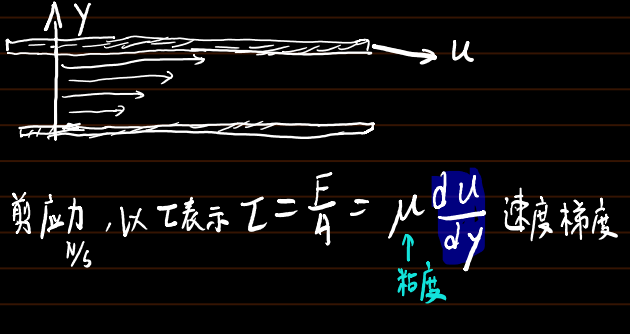 y
u
剪应力，以τ表示 τ = F/A = μ du/dy 速度梯度
N/s
粘度